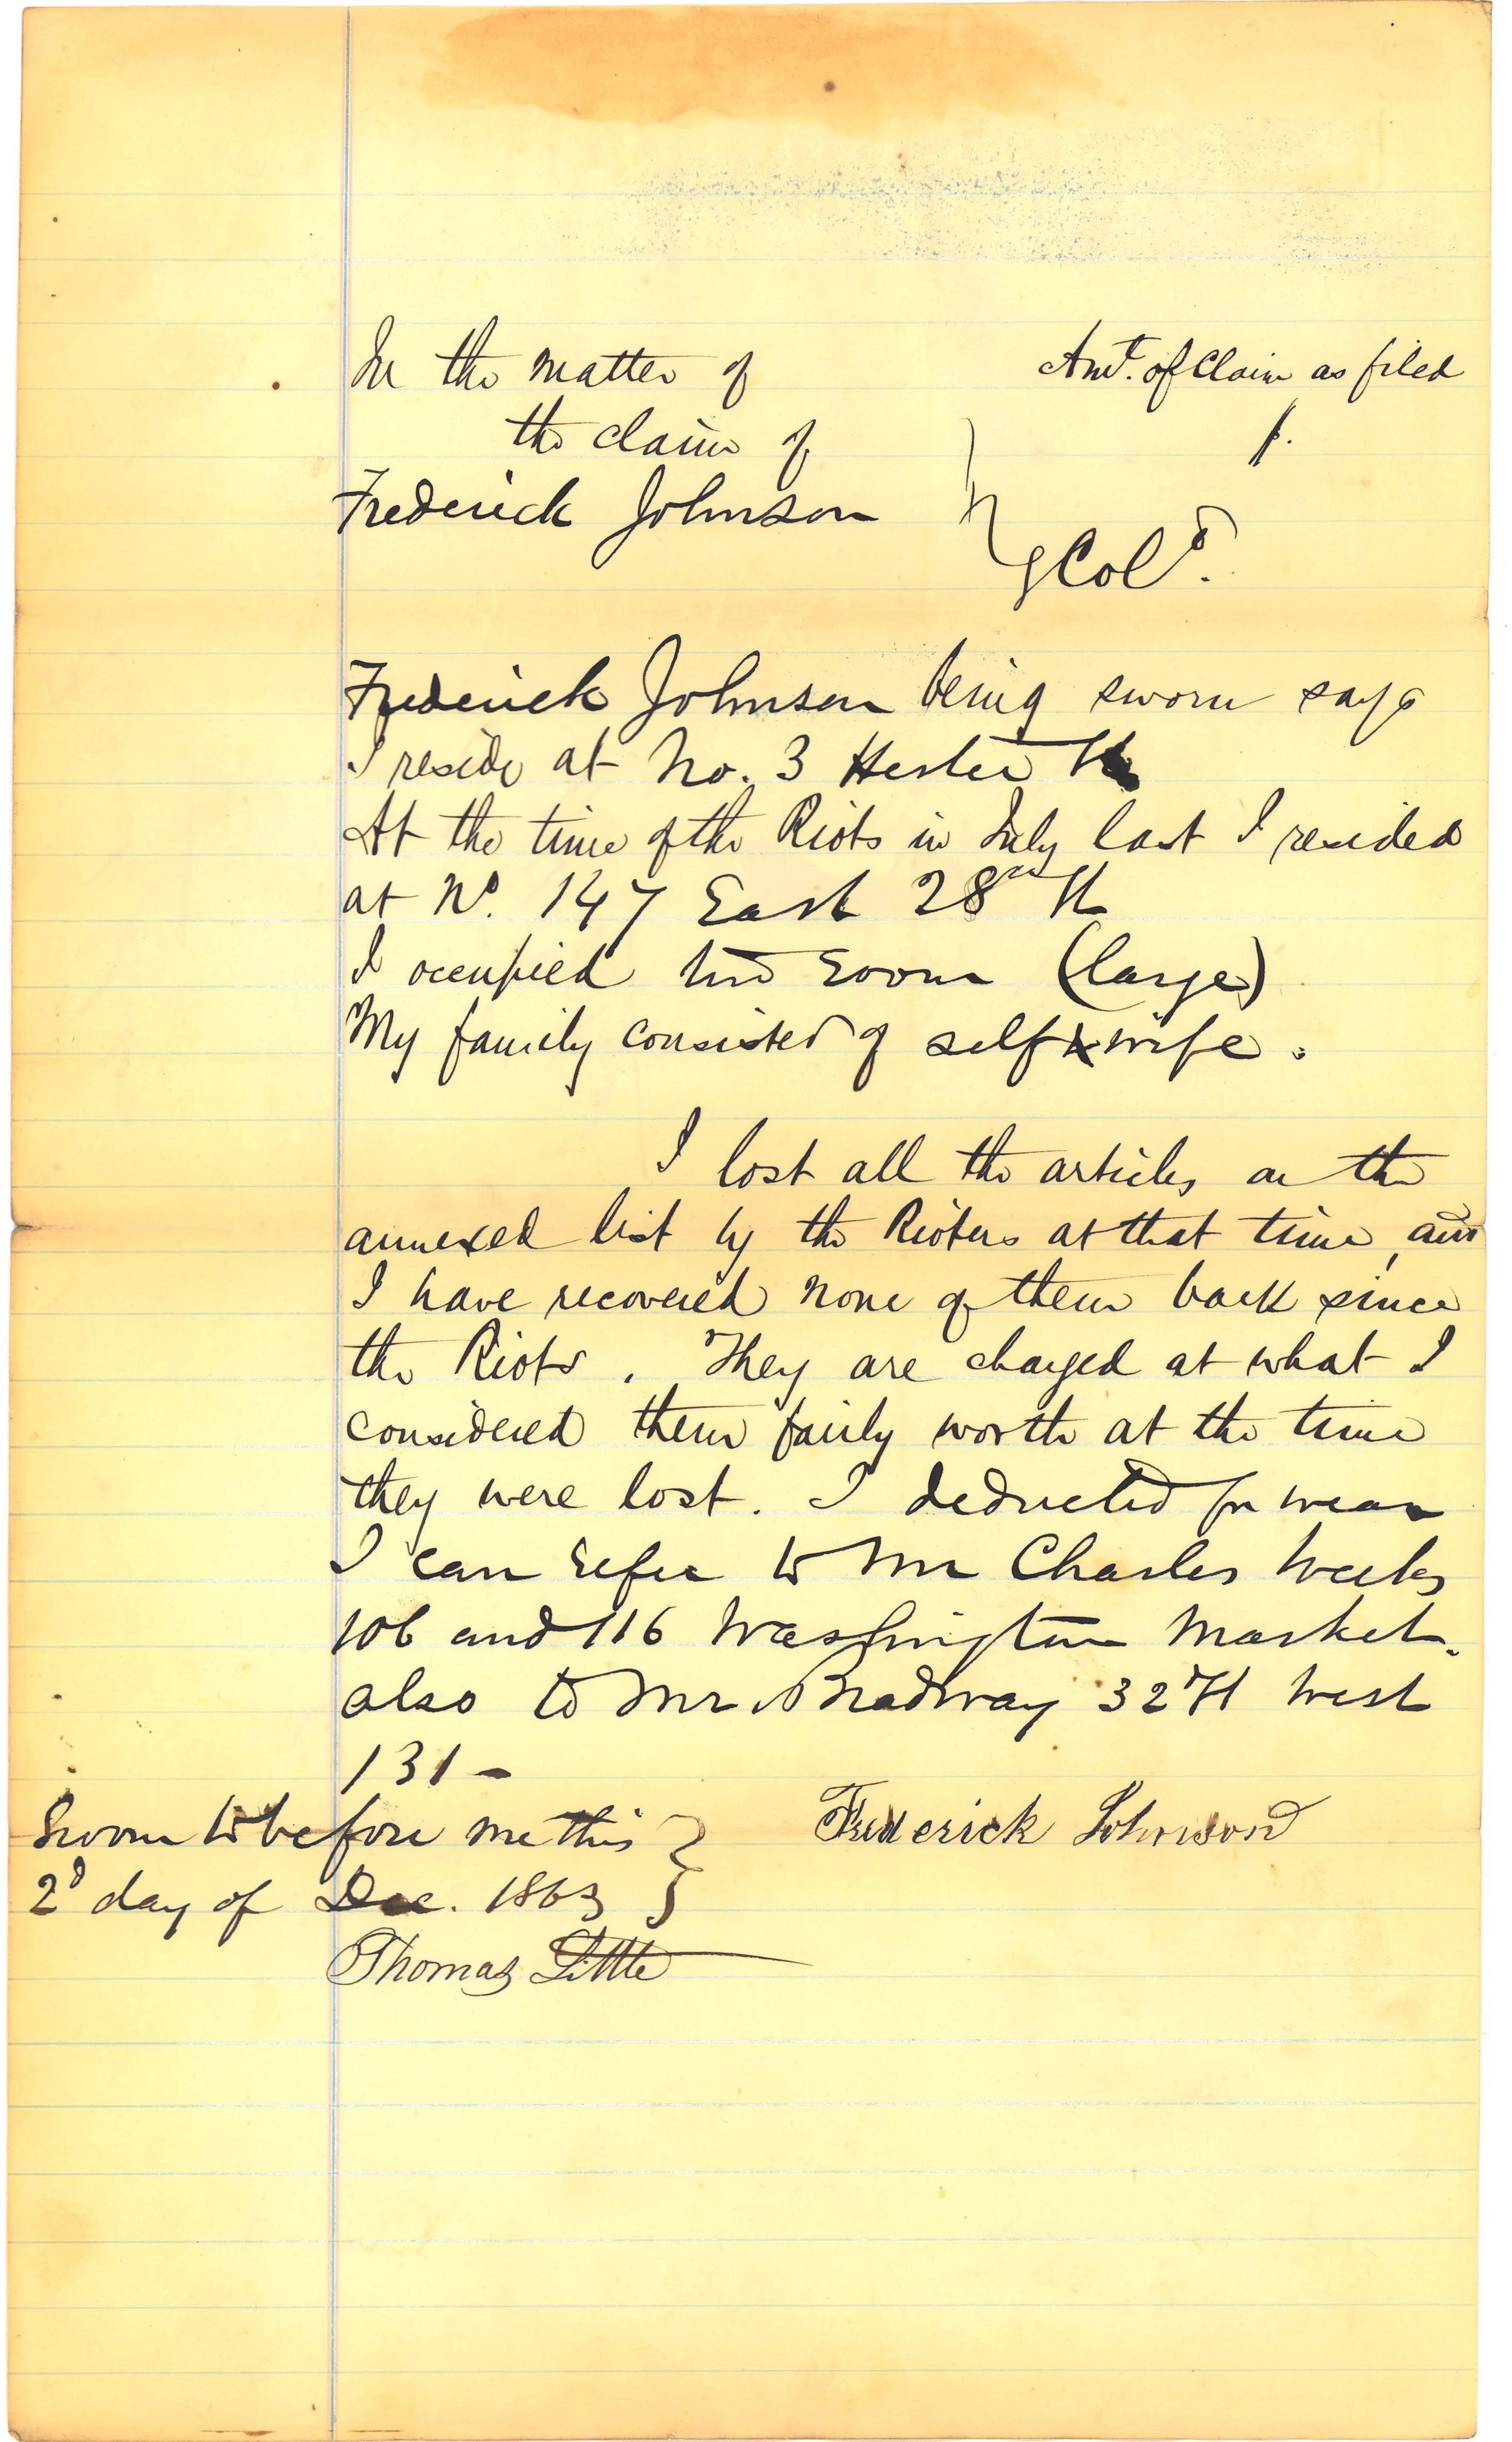 In the matter of
the claim of
Frederick Johnson
Amt. of Claim as filed
$.
Col'd.
Frederick Johnson being sworn says
I reside at No. 3 Hester St
At the time of the Riots in July last I resided
at No. 147 East 28th St
I occupied two room (large)
My family consisted of self & wife.
I lost all the articles on the
annexed list by the Rioters at that time, and
I have recovered none of them back since
the Riots. They are charged at what I
considered them fairly worth at the time
they were lost. I deducted for wear
I can refer to Mr Charles Weeks
106 and 116 Washington Market.
also to Mr Bradway 32 St West
131 -
Sworn to before me this
2d day of Dec. 1863
Frederick Johnson
Thomas Little